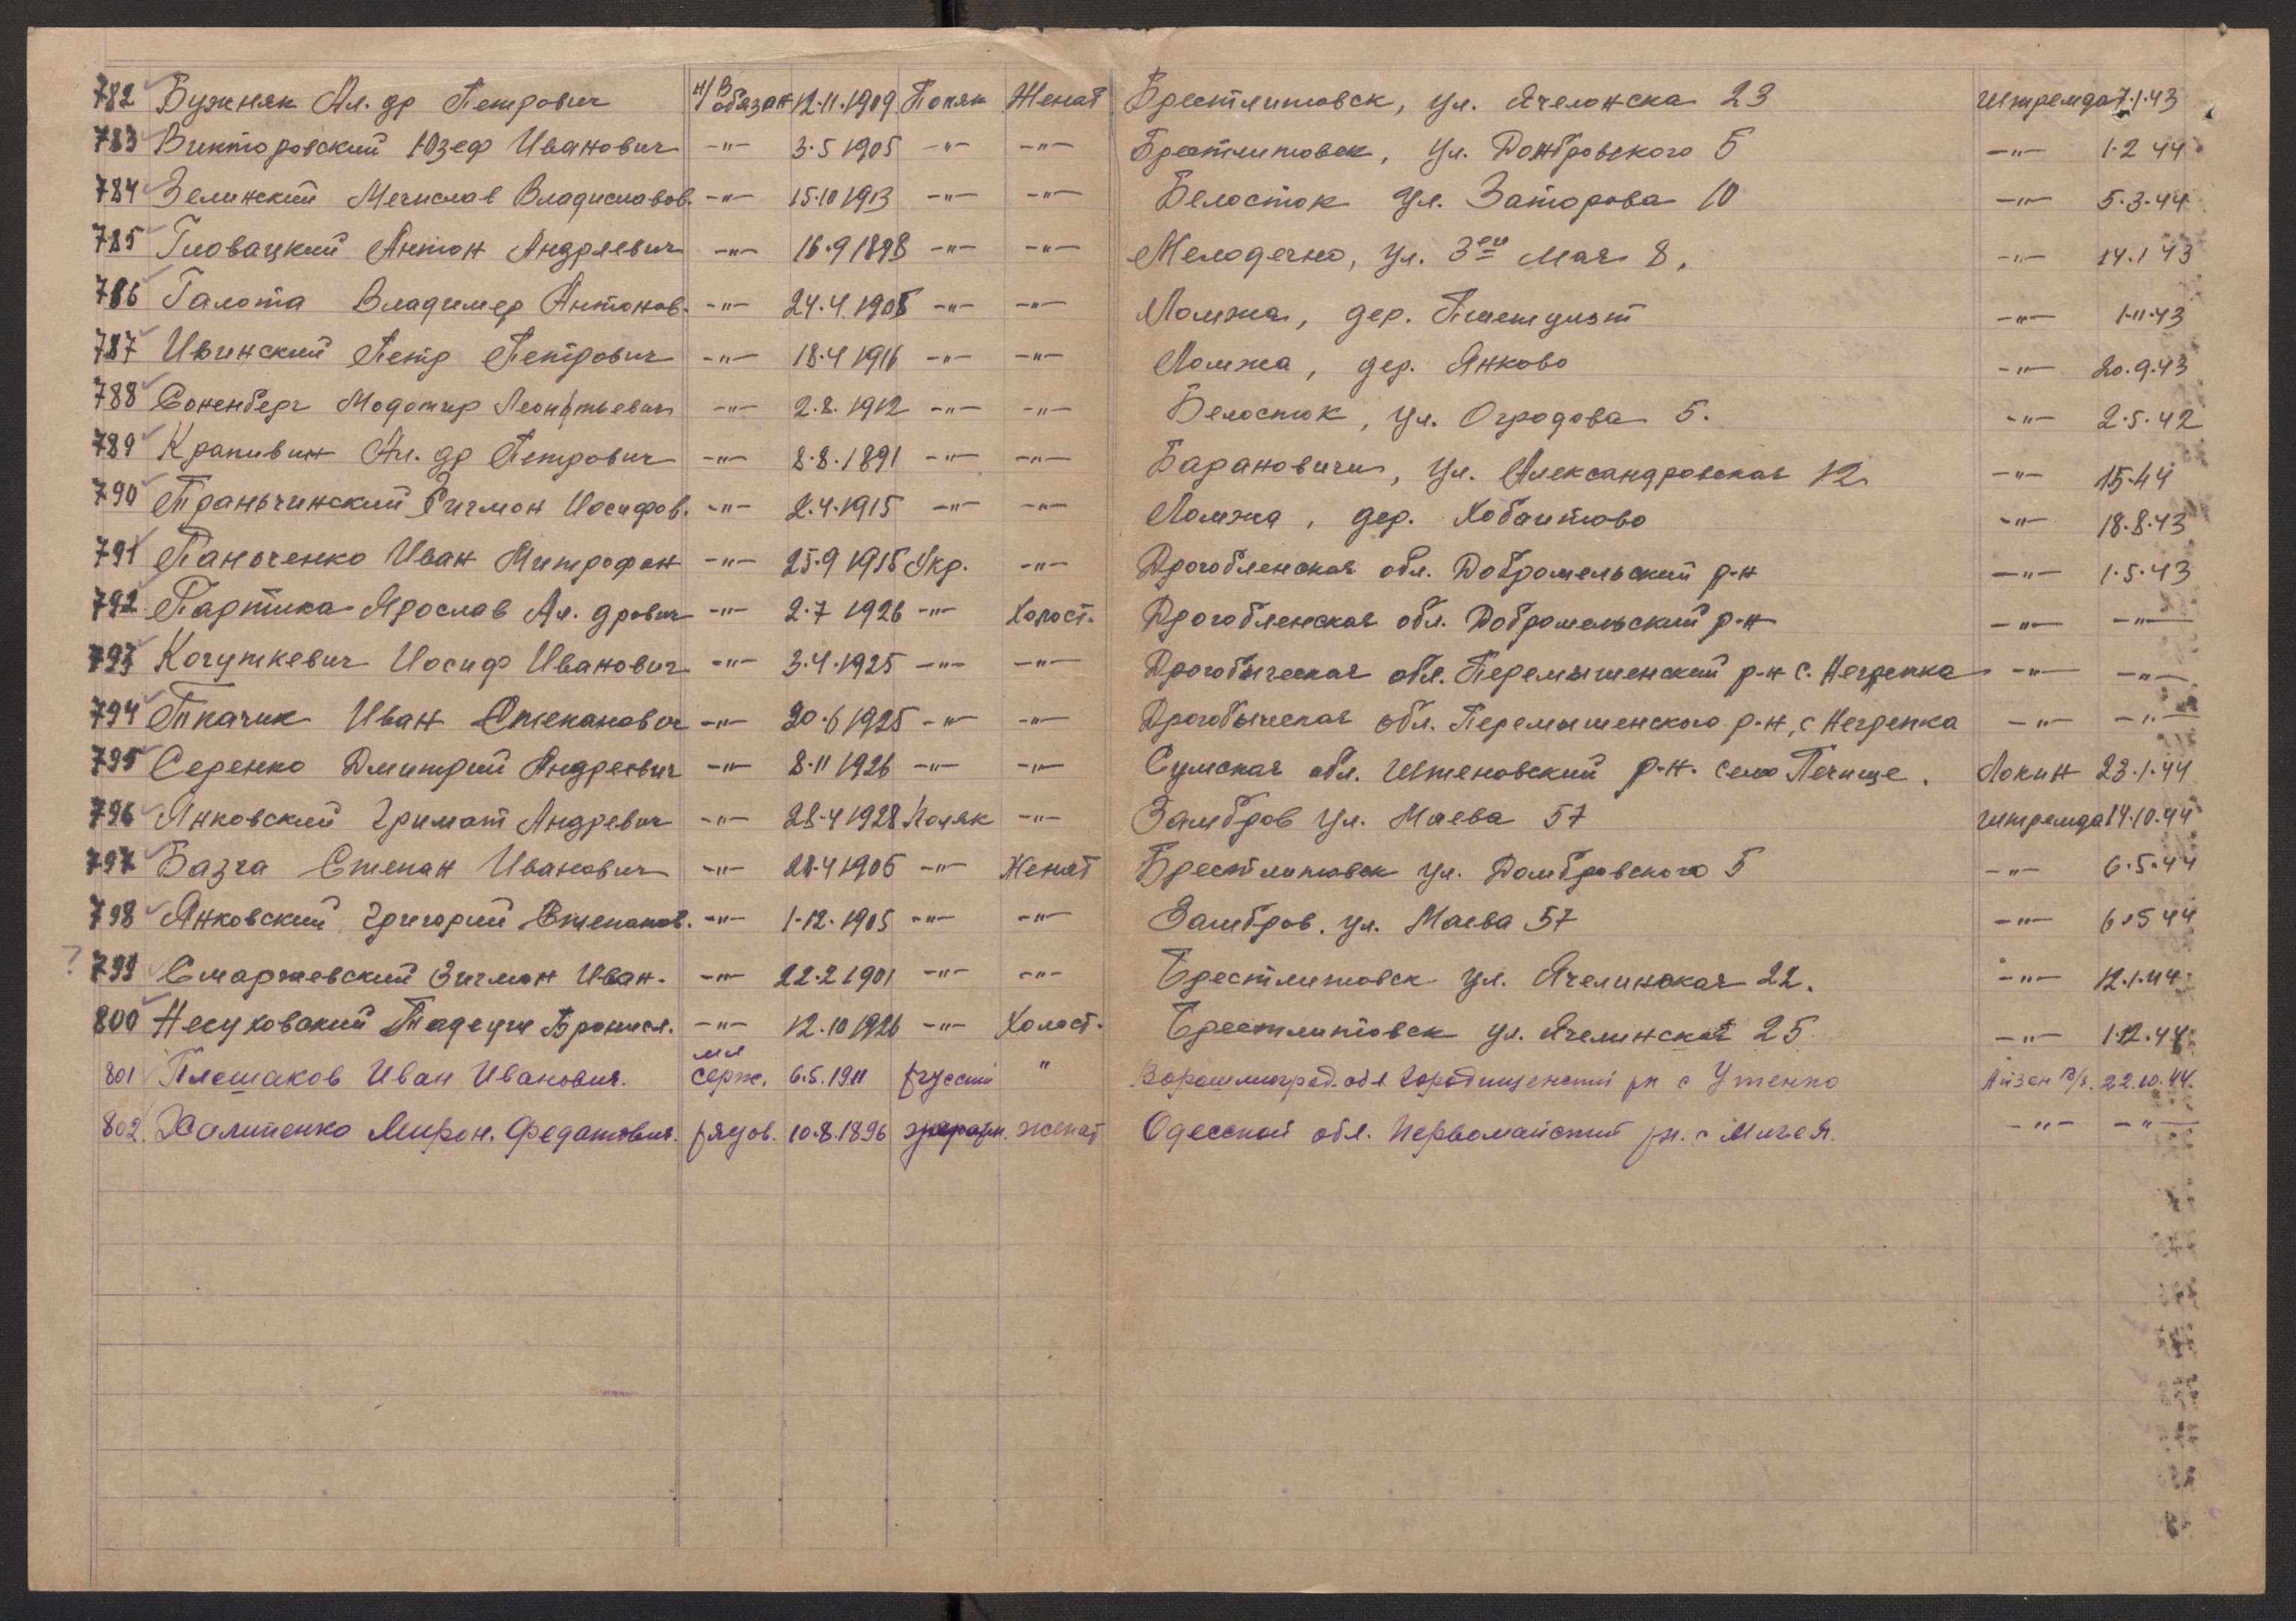 782 Бужняк Ал.др Петрович н/в обязан 12.11.1909 Поляк Женат Брестлитовск, ул. Ячелонска 23 Штремда 7.1.43
783 Викторовский Юзеф Иванович -"- 3.5 1905 -"- -"- Брестлитовск, ул. Домбровского 5 -"- 1.2 44
784 Зелинский Мечислав Владиславов. -"- 15.10 1913 -"- -"- Белосток ул. Заторова 10 -"- 5.3.44
785 Гловацкий Антон Андреевич -"- 16.9 1898 -"- -"- Мелодечно, ул. 3ей Мая 8. -"- 14.1 43
786 Галота Владимер Антонов. -"- 24.4.1905 -"- -"- Ломжа, дер. -"- 1.11.43
787 Ивинский Петр Петрович -"- 18.4 1916 -"- -"- Ломжа, дер. Янково -"- 20.9.43
788 Соненберг Леонтьевич -"- 2.8.1912 -"- -"- Белосток, ул. Огродова 5. -"- 2.5.42
789 Крапивин Ал.др Петрович -"- 8.8.1891 -"- -"- Барановичи, ул. Александровская 12 -"- 15.44
790 Траньчинский Зигмон Иосифов. -"- 2.4.1915 -"- -"- Ломжа, дер. -"- 18.8.43
791 Паноченко Иван Митрофан -"- 25.9 1915 Укр. -"- Дрогобленская обл. Добромельский р-н -"- 1.5.43
792 Партика Ярослав Ал.дрович -"- 2.7 1926 -"- Холост. Дрогобленская обл. Добромельский р-н -"- -"-
793 Когуткевич Иосиф Иванович -"- 3.4.1925 -"- -"- Дрогобыческая обл. Перемышленский р-н с. Негрепка -"- -"-
794 Ткачик Иван Степанович -"- 20.6 1925 -"- -"- Дрогобыческая обл. Перемышенского р-н, с Негрепка -"- -"-
795 Серенко Дмитрий Андреевич -"- 8.11 1926 -"- -"- Сумская обл. Штеновский р-н. село Печище. Локин 23.1.44
796 Янковский Гримат Андревич -"- 28.4 1928 Поляк -"- Замбров ул. Маева 57 Штремда 14.10.44
797 Базга Степан Иванович -"- 28.4 1905 -"- Женат Брестлитовск ул. Домбровского 5 -"- 6.5.44
798 Янковский Григорий Степанов. -"- 1.12.1905 -"- -"- Замбров. ул. Маева 57 -"- 6.5 44
? 799 Смаржевский Зигмон Иван. -"- 22.2 1901 -"- -"- Брестлитовск ул. Ячелинская 22. -"- 12.1.44
800 Несуховский Тадеуш Бронисл. -"- 12.10 1926 -"- Холост. Брестлитовск ул. Ячелинская 25 -"- 1.12.44
801 Плешаков Иван Иванович. мл серж. 6.5.1911 русский " Ворошиловград. обл Городищенский рн с Утенко Айзен 22.10.44.
802. Халипенко Мирон. Федотович. рядов. 10.8.1896 украин. женат Одесской обл. Первомайский рн. с Мигея. -"- -"-